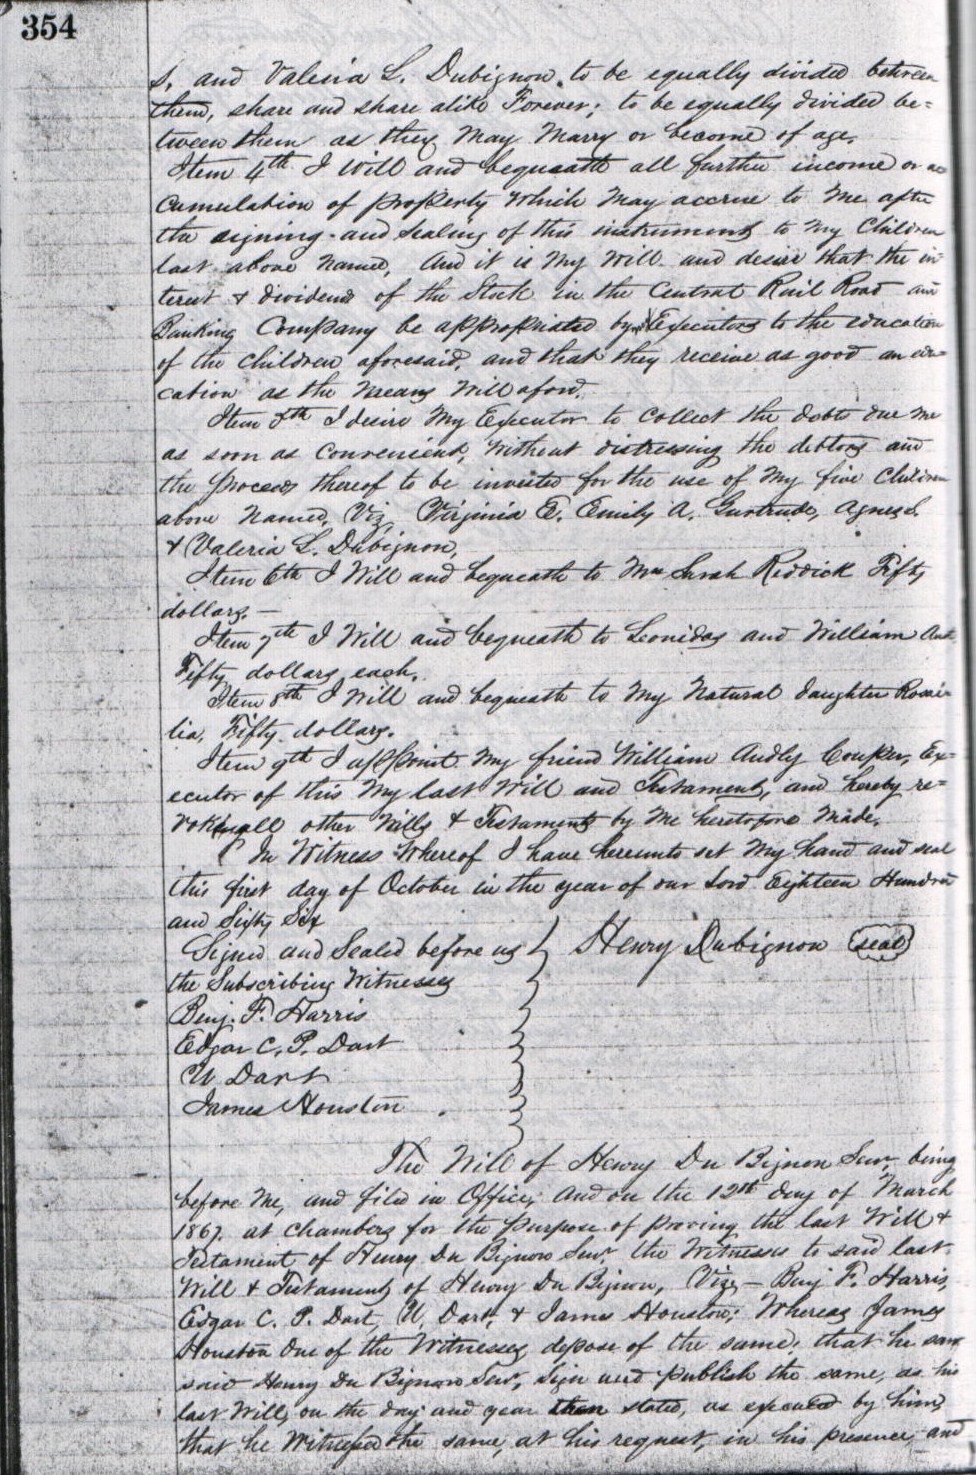 354
S. and Valeria L. Dubignon. to be equally divided between
them, share and share alike Forever; to be equally divided be=
tween them as they May Marry or become of age.
Item 4th I Will and bequeath all further income or ac
cumulation of property which May accrue to Me after
the signing and sealing of this instrument to My Children
last above Named, And it is My Will and desire that the in
terest & dividend of the Stock in the Central Rail Road and
Banking Company be appropriated by My Executors to the education
of the children aforesaid, and that they receive as good an edu=
cation as the Means Will aford.
Item 5th I desire My Executor to Collect the debts due Me
as soon as convenient, Without distressing the debtors and
the proceeds thereof to be invested for the use of My five Children
above Named, Viz, Virginia E. Emily A. Gertrude, Agnes S.
& Valeria L. Dubignon,
Item 6th I Will and bequeath to Mrs Sarah Riddick Fifty
dollars.—
Item 7th I Will and bequeath to Leonidas and William
Fifty dollars each.
Item 8th I Will and bequeath to My Natural daughter Rosai=
lia, Fifty dollars.
Item 9th I appoint My friend William Audly Couper, Ex=
ecutor of this My last Will and Testament, and hereby re=
voking all other Wills & Testaments by Me heretofore Made.
In Witness Whereof I have hereunto set My hand and seal
this first day of October in the year of our Lord Eighteen Hundred
and Sixty Six
Signed and Sealed before us Henry Dubignon seal
the Subscribing Witnesses
Benj. F. Harris
Edgar C. P. Dart
U Dart
James Houston
The Will of Henry Du Bignon Senr, being
before Me, and filed in Office, And on the 12th day of March
1867. at chambers for the purpose of proving the last Will &
Testament of Henry Du Bignon Senr, the Witnesses to said last
Will & Testament of Henry Du Bignon, Viz,— Benj F. Harris,
Edgar C. P. Dart, U, Dart, & James Houston; Whereas James
Houston One of the Witnesses depose of the same; that he saw
said Henry Du Bignon Senr, Sign and publish the same, as his
last Will, on the day and year then stated, as by him,
that he Witnessed the same, at his request, in his presence, and